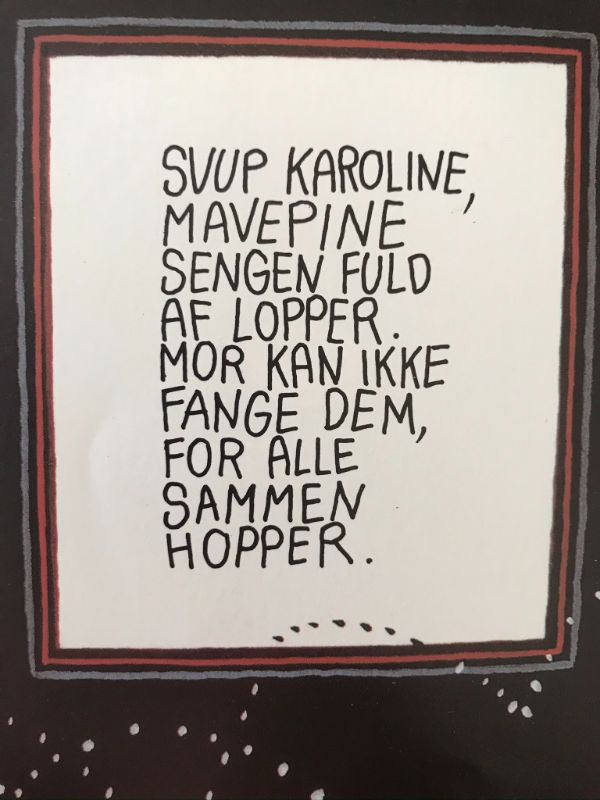 SVUP KAROLINE,
MAVEPINE
SENGEN FULD
AF LOPPER.
MOR KAN IKKE
FANGE DEM,
FOR ALLE
SAMMEN
HOPPER.